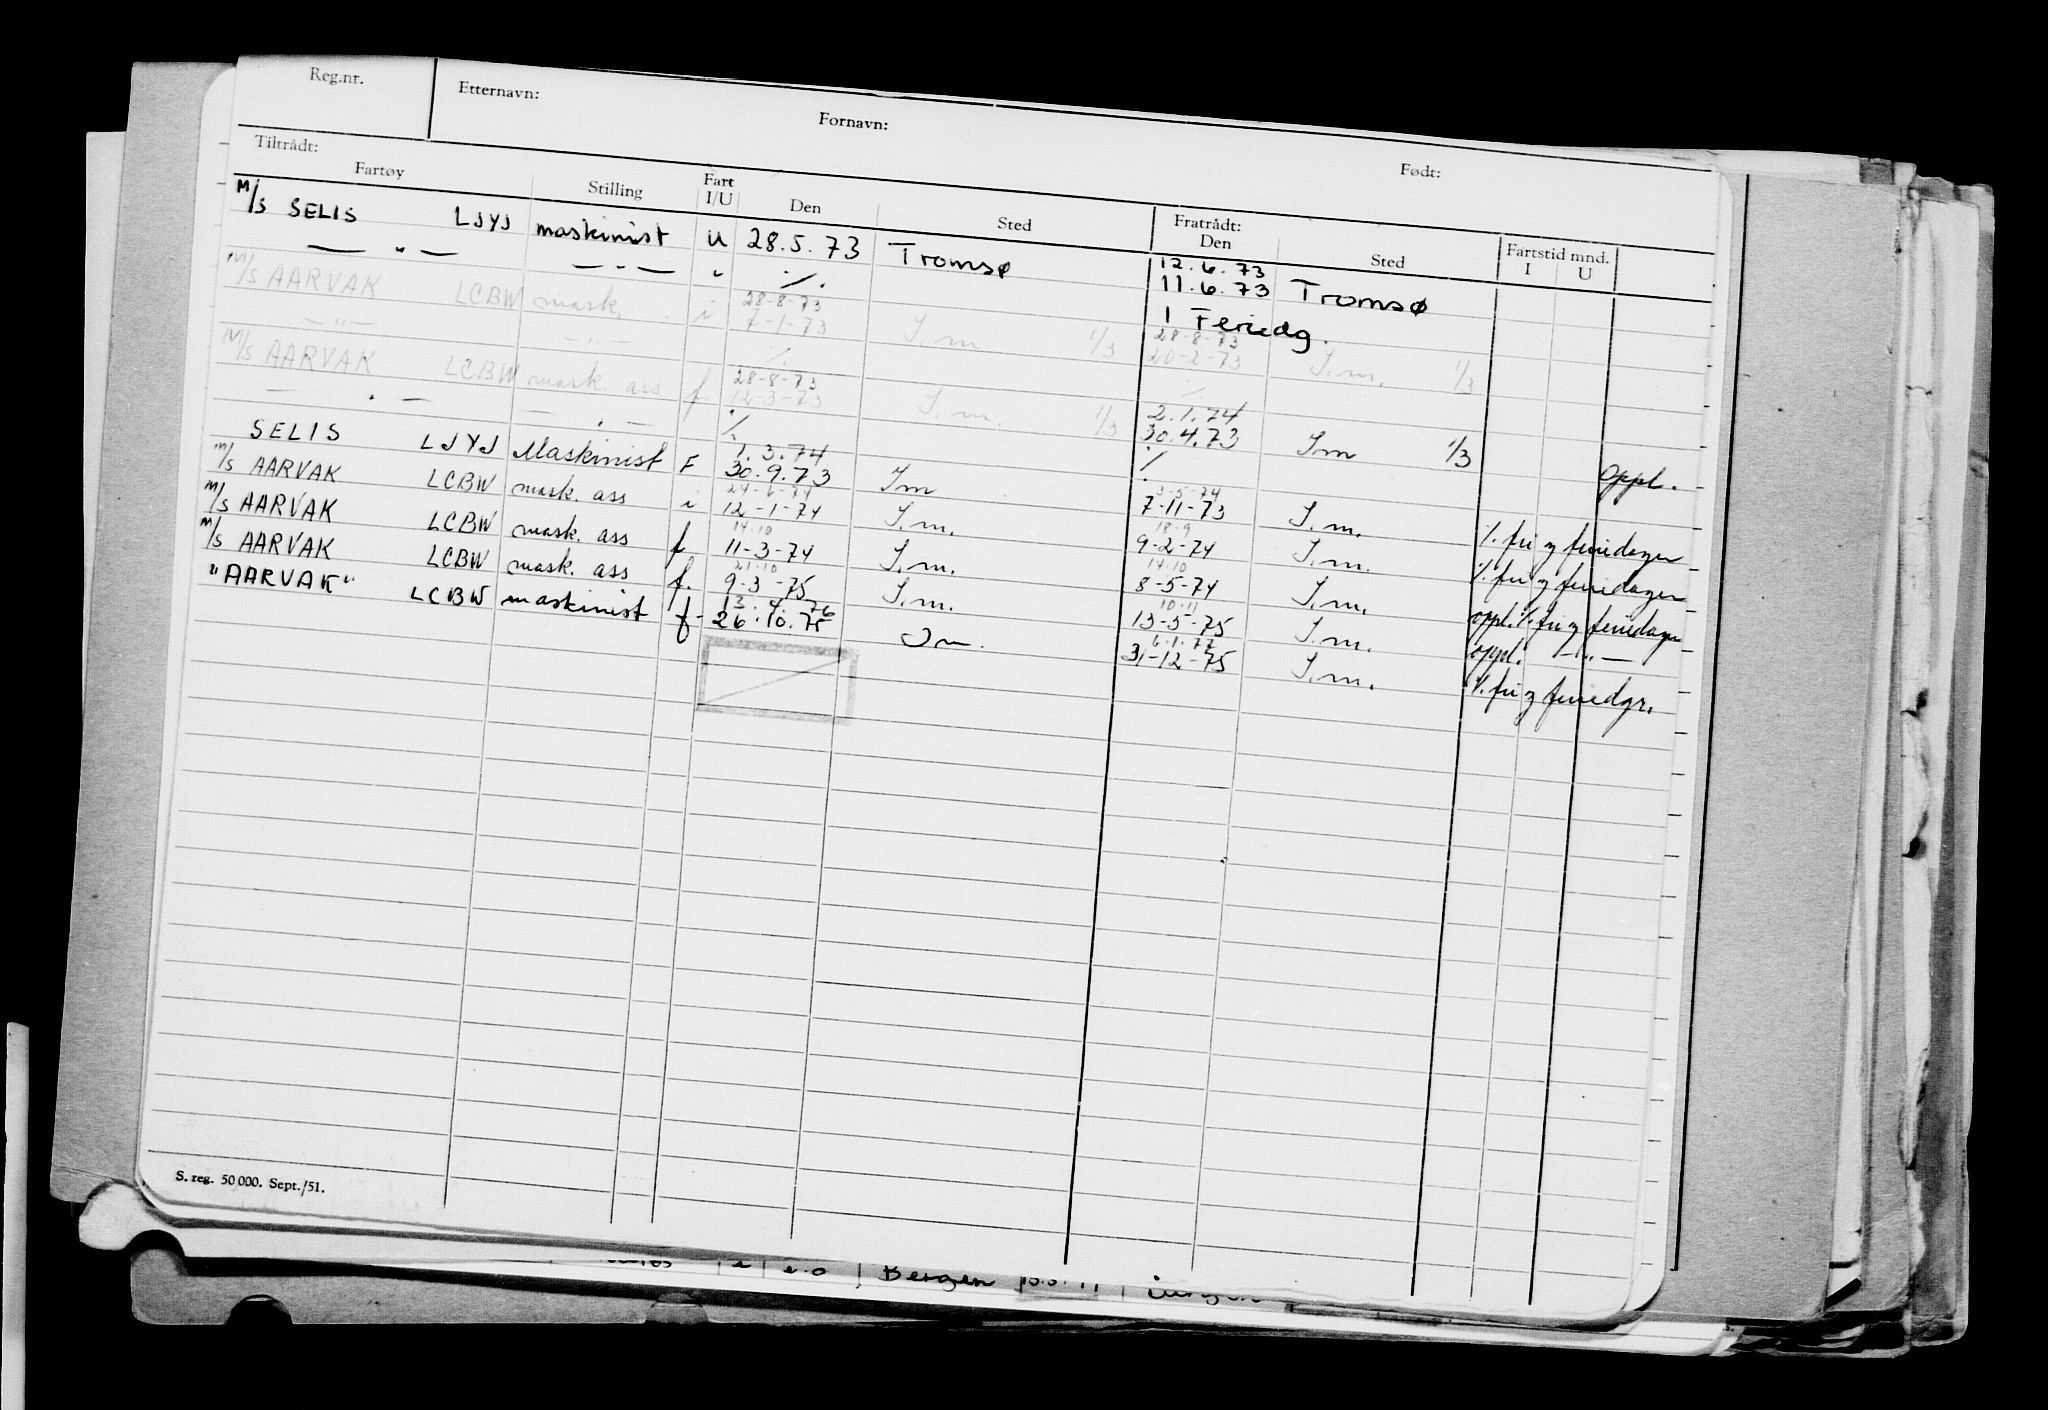 Reg.nr. Etternavn: Fornavn: Født:
Tiltrådt: Fratrådt:
Fartøy Stilling Fart I/U Den Sted Den Sted Fartstid mnd. I U
M/S SELIS LJYJ maskinist U 28.5.73 Tromsø 12.6.73
— " — — " — " ./. 11.6.73 Tromsø
1 Feriedg.
M/S AARVAK LCBW mask. i 28-8-73 28-8-73
— " — — " — 7-1-73 S.m. 1/3 20-2-73 S.m. 1/3
./. ./.
M/S AARVAK LCBW mask. ass. f. 28-8-73 2.1.74
— " — — " — 12-3-73 S.m. 1/3 30.4.73 Sm 1/3
./. ./. oppl.
1.3.74 3-5-74
SELIS LJYJ Maskinist F 30.9.73 Sm 7-11-73 S.m. ./. fri og feriedager
24-6-74 18-9
M/S AARVAK LCBW mask. ass i 12-1-74 S.m. 9-2-74 S.m. ./. fri og feriedager
14.10 14.10
M/S AARVAK LCBW mask. ass f 11-3-74 S.m. 8-5-74 S.m. oppl. ./. fri og feriedager
21.10 10.11
M/S AARVAK LCBW mask. ass f. 9-3-75 S.m. 13-5-75 S.m. oppl. — " —
13.4.76 6.1.77
"AARVAK" LCBW maskinist f- 26.10.75 Sm. 31-12-75 S.m. ./. fri og feriedgr.
S. reg. 50 000. Sept./51.
Bergen